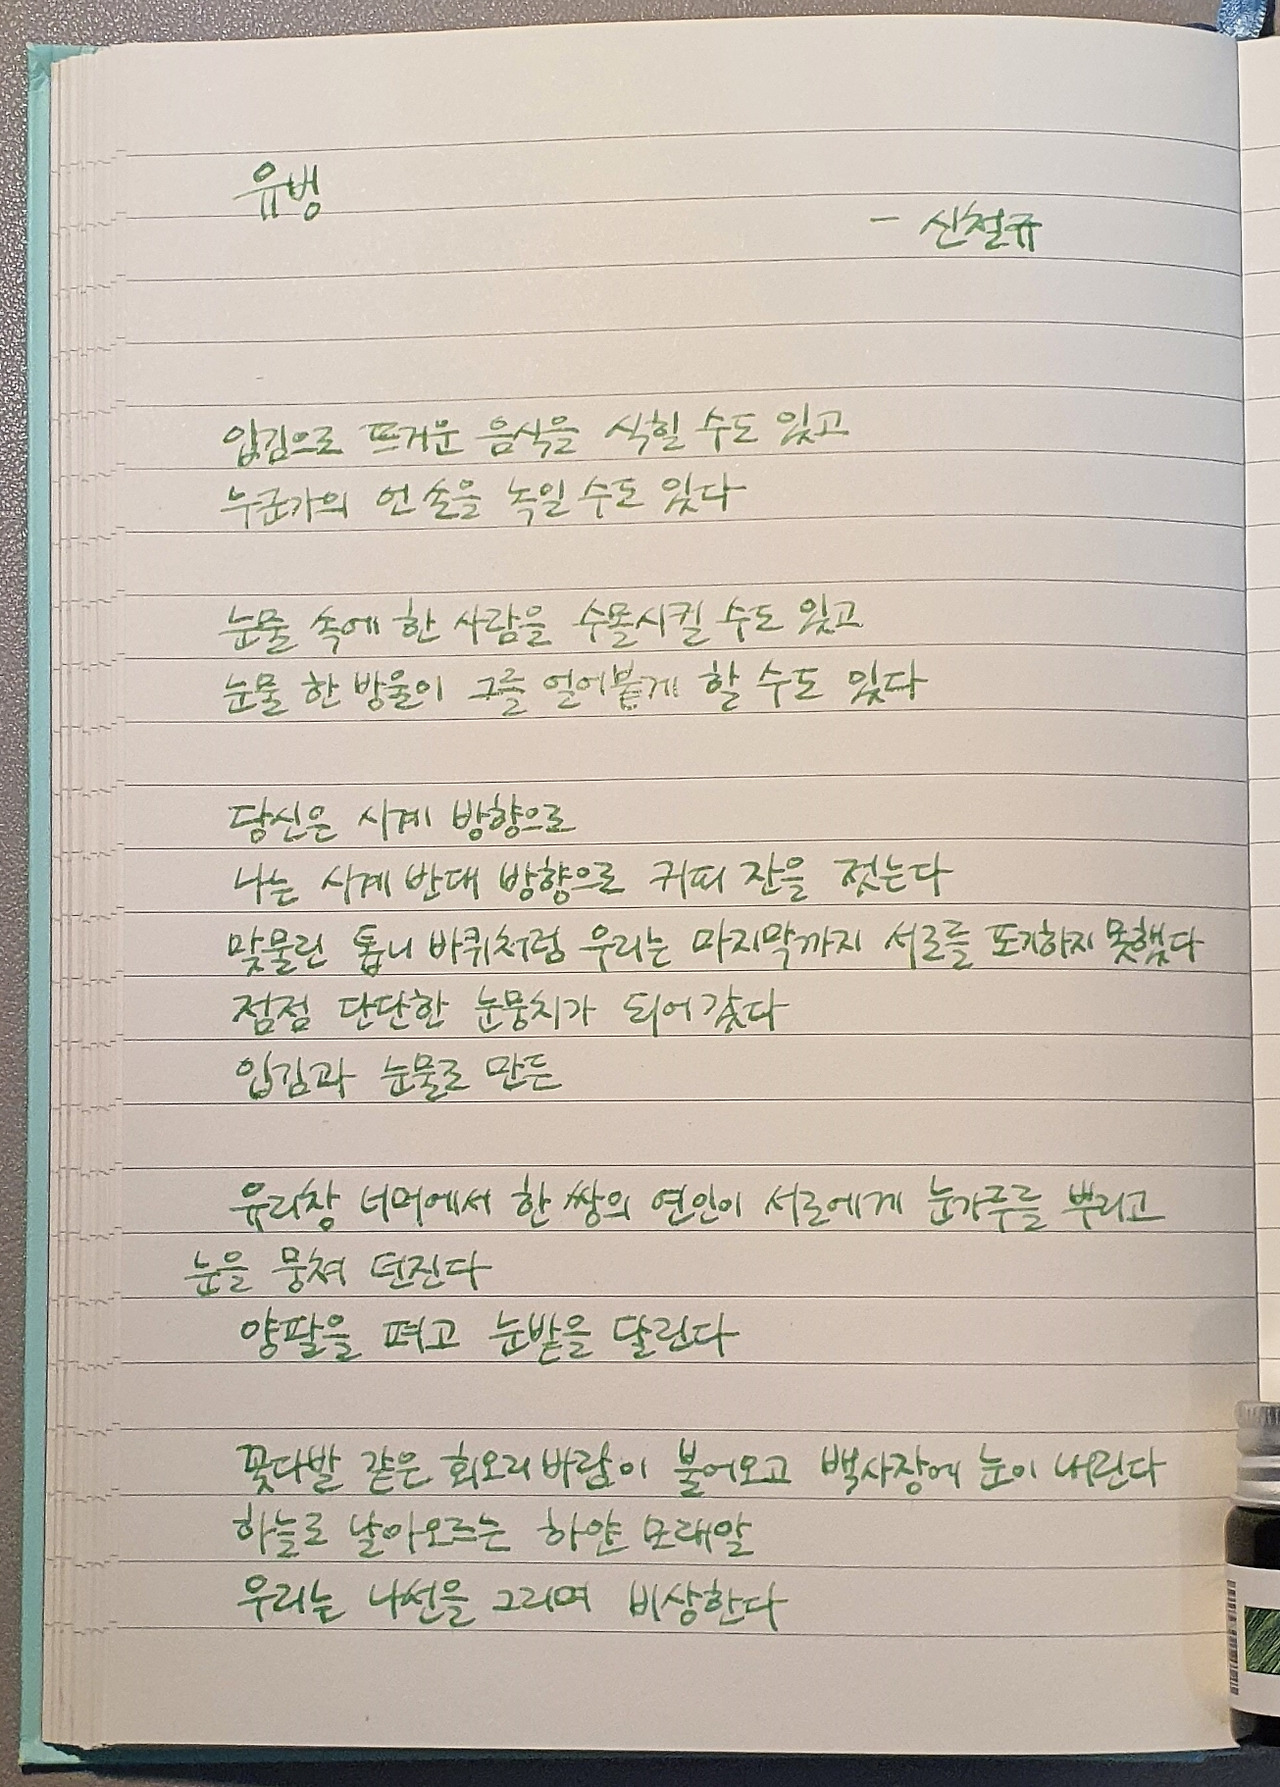 유빙
- 신철규
입김으로 뜨거운 음식을 식힐 수도 있고
누군가의 언 손을 녹일 수도 있다
눈물 속에 한 사람을 수몰시킬 수도 있고
눈물 한 방울이 그를 얼어붙게 할 수도 있다
당신은 시계 방향으로
나는 시계 반대 방향으로 커피 잔을 젓는다
맞물린 톱니 바퀴처럼 우리는 마지막까지 서로를 포기하지 못했다
점점 단단한 눈뭉치가 되어갔다
입김과 눈물로 만든
유리창 너머에서 한 쌍의 연인이 서로에게 눈가루를 뿌리고
눈을 뭉쳐 던진다
양팔을 펴고 눈밭을 달린다
꽃다발 같은 회오리 바람이 불어오고 백사장에 눈이 내린다
하늘로 날아오르는 하얀 모래알
우리는 나선을 그리며 비상한다